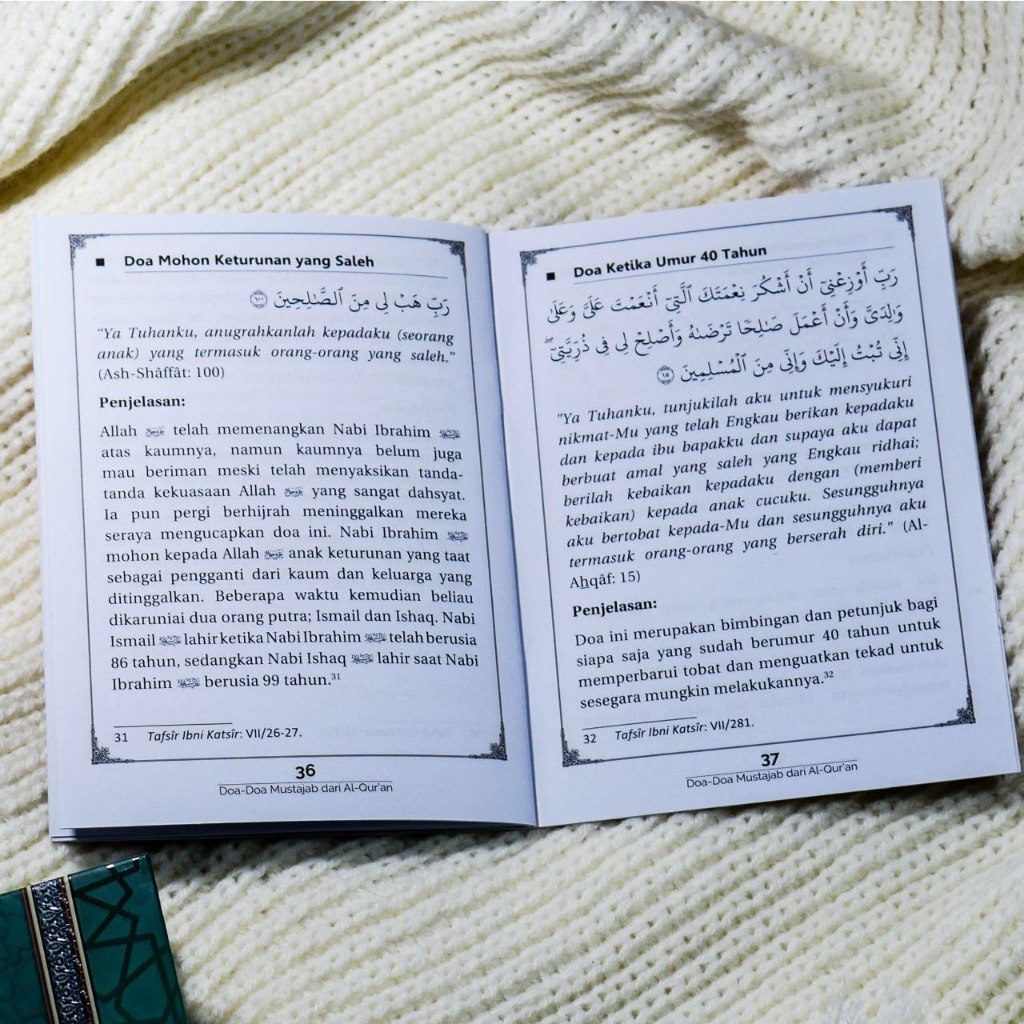 Doa Mohon Keturunan yang Saleh
رَبِّ هَبْ لِى مِنَ ٱلصَّٰلِحِينَ ١٠٠
"Ya Tuhanku, anugrahkanlah kepadaku (seorang
anak) yang termasuk orang-orang yang saleh."
(Ash-Shâffât: 100)
Penjelasan:
Allah telah memenangkan Nabi Ibrahim
atas kaumnya, namun kaumnya belum juga
mau beriman meski telah menyaksikan tanda-
tanda kekuasaan Allah yang sangat dahsyat.
Ia pun pergi berhijrah meninggalkan mereka
seraya mengucapkan doa ini. Nabi Ibrahim
mohon kepada Allah anak keturunan yang taat
sebagai pengganti dari kaum dan keluarga yang
ditinggalkan. Beberapa waktu kemudian beliau
dikaruniai dua orang putra; Ismail dan Ishaq. Nabi
Ismail lahir ketika Nabi Ibrahim telah berusia
86 tahun, sedangkan Nabi Ishaq lahir saat Nabi
Ibrahim berusia 99 tahun.³¹
31 Tafsîr Ibni Katsîr: VII/26-27.
36
Doa-Doa Mustajab dari Al-Qur'an
Doa Ketika Umur 40 Tahun
رَبِّ أَوْزِعْنِىٓ أَنْ أَشْكُرَ نِعْمَتَكَ ٱلَّتِىٓ أَنْعَمْتَ عَلَىَّ وَعَلَىٰ
وَٰلِدَىَّ وَأَنْ أَعْمَلَ صَٰلِحًا تَرْضَىٰهُ وَأَصْلِحْ لِى فِى ذُرِّيَّتِىٓ ۖ
إِنِّى تُبْتُ إِلَيْكَ وَإِنِّى مِنَ ٱلْمُسْلِمِينَ ١٥
"Ya Tuhanku, tunjukilah aku untuk mensyukuri
nikmat-Mu yang telah Engkau berikan kepadaku
dan kepada ibu bapakku dan supaya aku dapat
berbuat amal yang saleh yang Engkau ridhai;
berilah kebaikan kepadaku dengan (memberi
kebaikan) kepada anak cucuku. Sesungguhnya
aku bertobat kepada-Mu dan sesungguhnya aku
termasuk orang-orang yang berserah diri." (Al-
Ahqâf: 15)
Penjelasan:
Doa ini merupakan bimbingan dan petunjuk bagi
siapa saja yang sudah berumur 40 tahun untuk
memperbarui tobat dan menguatkan tekad untuk
sesegera mungkin melakukannya.³²
32 Tafsîr Ibni Katsîr: VII/281.
37
Doa-Doa Mustajab dari Al-Qur'an